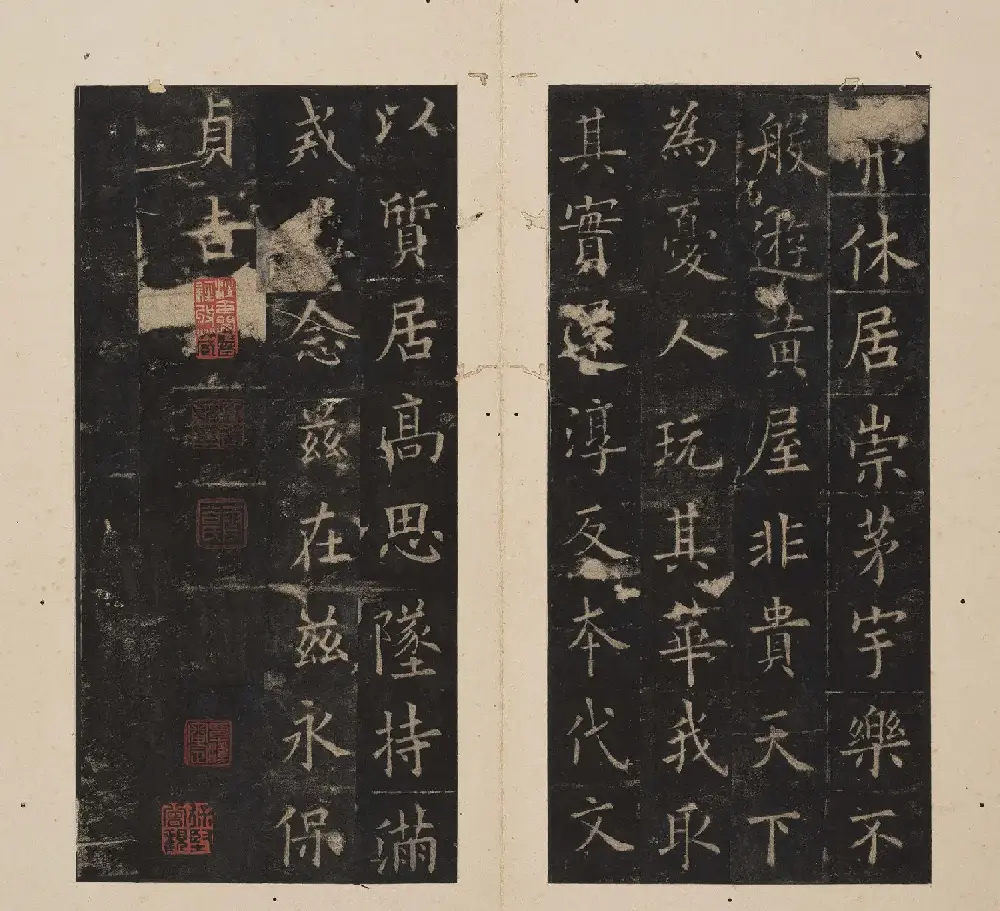 休居崇茅宇樂不
般遊黃屋非貴天下
為憂人玩其華我取
其實還淳反本代文
以質居高思墜持滿
戒 念茲在茲永保
貞吉